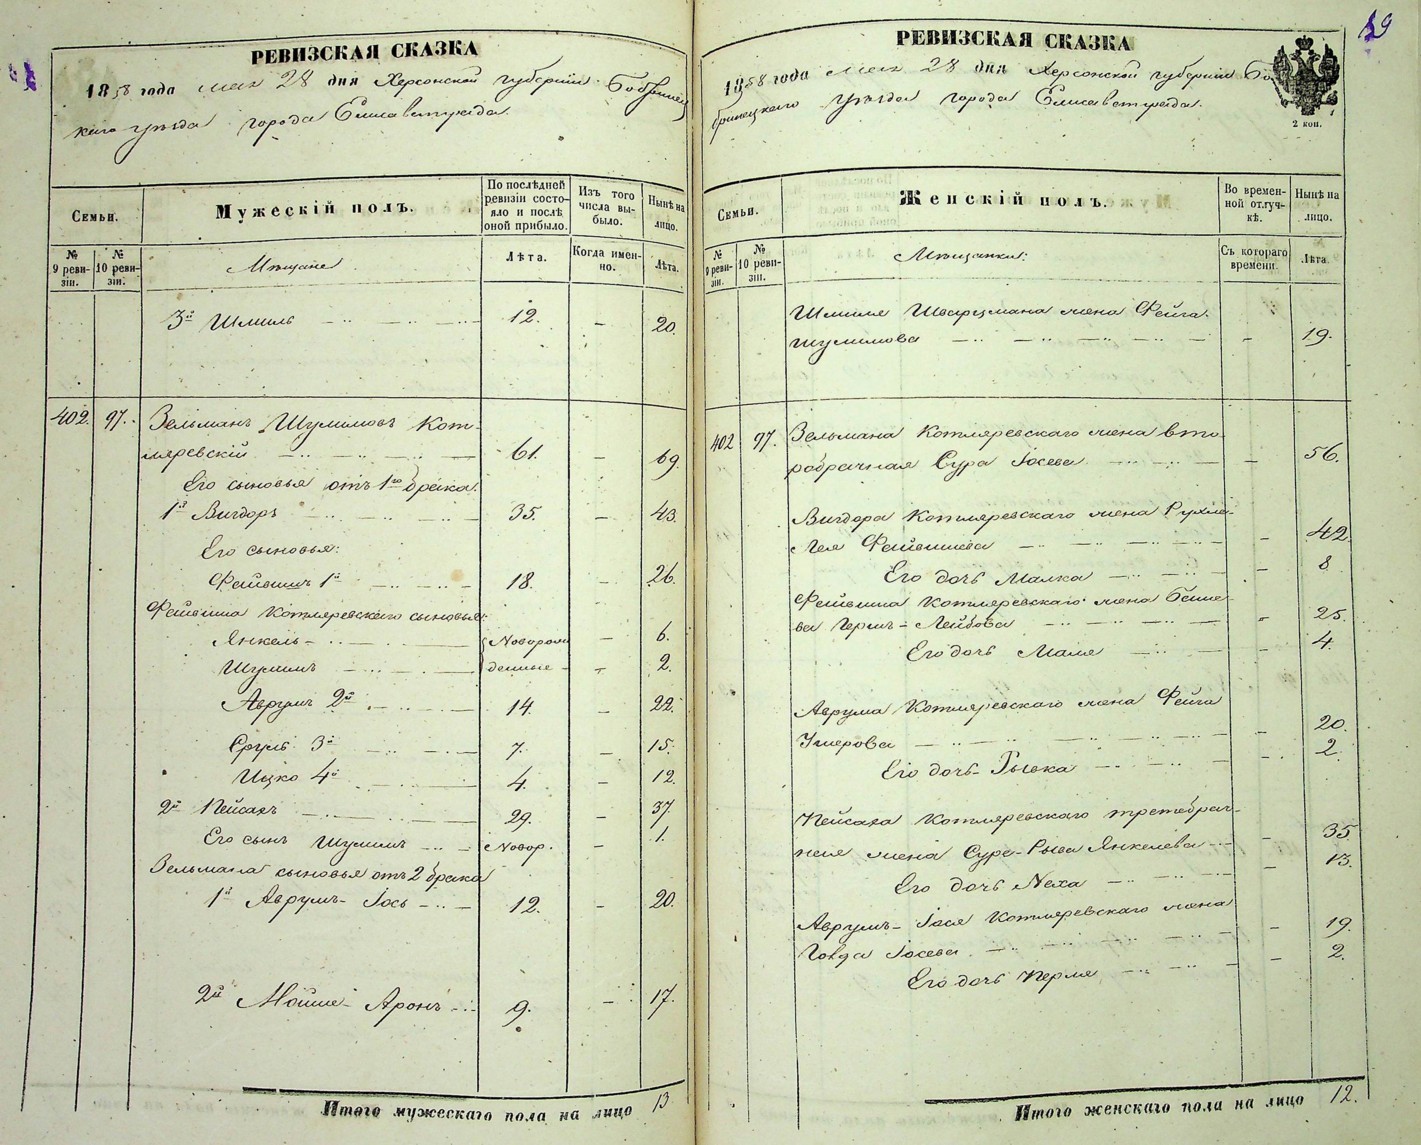 РЕВИЗСКАЯ СКАЗКА
1858 года мая 28 дня Херсонской губернии Бобринец
каго уѣзда города Елисаветграда.
Семьи.
Мужескій полъ.
По послѣдней ревизіи состояло и послѣ оной прибыло.
Изъ того числа выбыло.
Нынѣ на лицо.
№ 9 ревизіи.
№ 10 ревизіи.
Мѣщане
Лѣта.
Когда именно.
Лѣта.
3й Шмиль 12. – 20.
402. 97. Зельманъ Шулимовъ Кот-
ляревскій 61. – 69.
Его сыновья отъ 1го брака.
1й Вигдоръ 35. – 43.
Его сыновья:
Файвишъ 1й 18. – 26.
Файвиша Котляревскаго сыновья:
Янкель Новорож – 6.
Шулимъ денные – 2.
Аврумъ 2й 14. – 22.
Сруль 3й 7. – 15.
Ицко 4й 4. – 12.
2й Пейсахъ 29. – 37.
Его сынъ Шулимъ Новор. – 1.
Зельмана сыновья отъ 2 брака
1й Аврумъ-Іось 12. – 20.
2й Мойше-Аронъ 9. – 17.
Итого мужескаго пола на лицо 13
29
РЕВИЗСКАЯ СКАЗКА
1858 года мая 28 дня Херсонской губерніи Бо
бринецкаго уѣзда города Елисаветграда.
2 коп.
Семьи.
Женскій полъ.
Во временной отлучкѣ.
Нынѣ на лицо.
№ 9 ревизіи.
№ 10 ревизіи.
Мѣщанки:
Съ котораго времени.
Лѣта
Шмиля Шварцмана жена Фейга
Шулимова – 19.
402 97. Зельмана Котляревскаго жена вто-
робрачная Сура Іосева – 56.
Вигдора Котляревскаго жена Рухле-
Лея Файвишева – 42.
Его дочь Малка – 8
Файвиша Котляревскаго жена Бейле-
ва Гершъ-Лейбова – 25.
Его дочь Маля 4.
Аврума Котляревскаго жена Фейга
Ушерова – 20.
Его дочь Рывка – 2.
Пейсаха Котляревскаго третебрач-
ная жена Суре-Рыва Янкелева – 35
Его дочь Неха – 13.
Аврумъ-Іося Котляревскаго жена
Голда Іосева – 19.
Его дочь Перля – 2.
Итого женскаго пола на лицо 12.